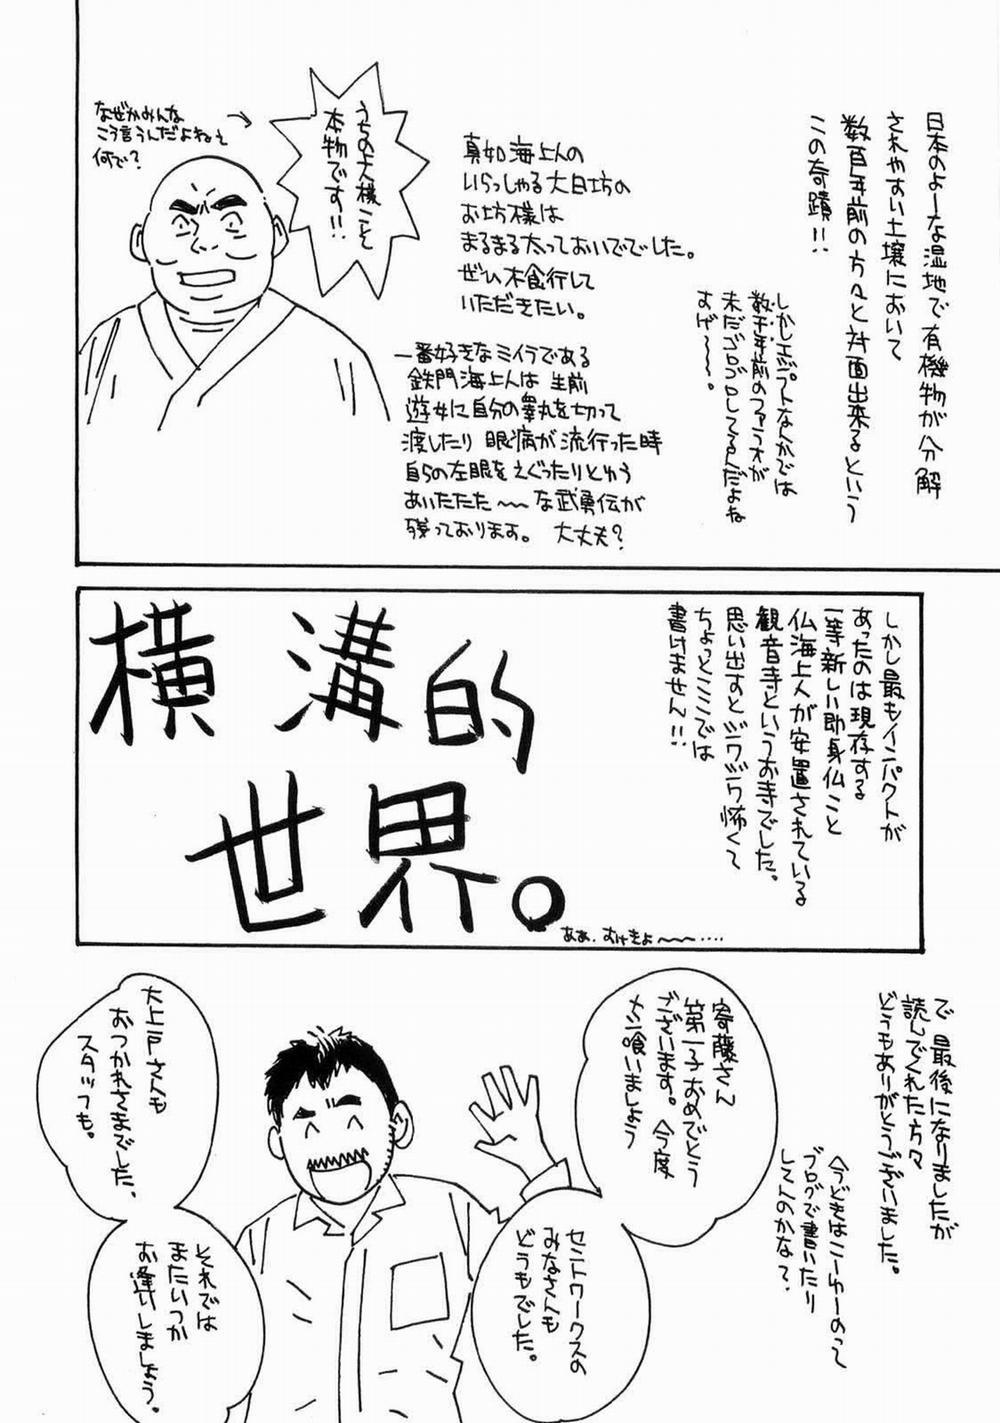 日本のよーな湿地で有機物が分解
されやすい土壌において
数百年前の方々と対面出来るという
この奇蹟!!
しかしエジプトなんかでは
数千年前のファラオが
未だゴロゴロしてるんだよね
すげ〜〜〜。
真如海上人の
いらっしゃる大日坊の
お坊様は
まるまる太っておいででした。
ぜひ木食行して
いただきたい。
うちの上人様こそ
本物です!!
なぜかみんな
こう言うんだよねぇ
何で?
一番好きなミイラである
鉄門海上人は 生前
遊女に自分の睾丸を切って
渡したり 眼病が流行った時
自らの左眼をえぐったりとゆう
あいたたた〜〜な武勇伝が
残っております。 大丈夫?
しかし最もインパクトが
あったのは現存する
一等新しい即身仏こと
仏海上人が安置されている
観音寺というお寺でした。
思い出すとジワジワ怖くて
ちょっとここでは
書けません!!
横溝的
世界。
ああ、むけきよ〜〜‥‥
で、最後になりましたが
読んでくれた方々
どうもありがとうございました。
今どきはこーゆーのって
ブログで書いたり
してんのかな?
寄藤さん
第一子おめでとう
ございます。今度
メシ喰いましょう
セントワークスの
みなさんも
どうもでした。
大上戸さんも
おつかれさまでした、
スタッフも。
それでは
またいつか
お逢いしましょう。